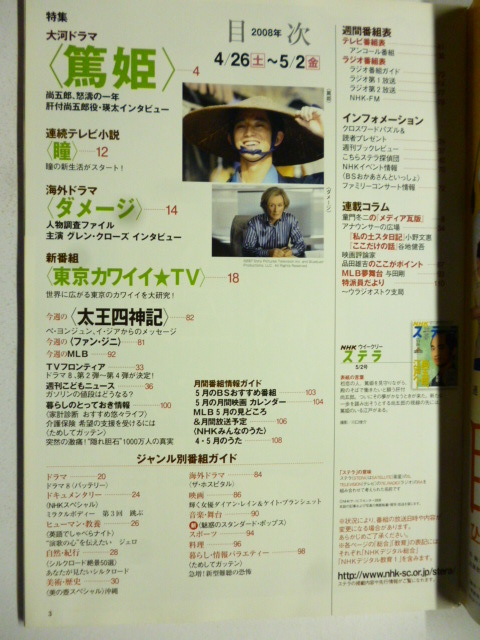 特集
目 2008年 次
4/26(土)〜5/2(金)
大河ドラマ
〈篤姫〉 4
尚五郎、怒濤の一年
肝付尚五郎役・瑛太インタビュー
連続テレビ小説
〈瞳〉 12
瞳の新生活がスタート!
海外ドラマ
〈ダメージ〉 14
人物調査ファイル
主演 グレン・クローズ インタビュー
新番組
〈東京カワイイ★TV〉 18
世界に広がる東京のカワイイを大研究!
今週の〈太王四神記〉 82
ペ・ヨンジュン、イ・ジアからのメッセージ
今週の〈ファン・ジニ〉 81
今週のMLB 92
TVフロンティア 33
ドラマ8、第2弾〜第4弾が決定!
週刊こどもニュース 36
ガソリンの値段はどうなる?
暮らしのとっておき情報 100
〈家計診断 おすすめ悠々ライフ〉
介護保険 希望の支援を受けるには
〈ためしてガッテン〉
突然の激痛!"隠れ胆石"1000万人の真実
月間番組情報ガイド
5月のBSおすすめ番組 103
5月の月間映画 カレンダー 104
MLB 5月の見どころ
&おすすめ番組 106
〈NHKみんなのうた〉
4・5月のうた 108
ジャンル別番組ガイド
ドラマ 20
ドラマ8〈バッテリー〉
ドキュメンタリー 24
〈NHKスペシャル〉
ミラクルボディー 第3回 跳ぶ
ヒューマン・教養 26
〈英語でしゃべらナイト〉
"演歌の心"を伝えたい ジェロ
自然・紀行 28
〈シルクロード絶景50選〉
あなたが見たいシルクロード
美術・歴史 30
〈美の壺スペシャル〉沖縄
海外ドラマ 84
〈ザ・ホスピタル〉
映画 86
輝く女優ダイアン・レイン&ケイト・ブランシェット
音楽・舞台 90
新〈魅惑のスタンダード・ポップス〉
スポーツ 94
料理 96
暮らし・情報バラエティー 98
〈ためしてガッテン〉
急増!新型腰痛の恐怖
週間番組表
テレビ番組表
アンコール番組
ラジオ番組表
ラジオ番組ガイド
ラジオ第1放送
ラジオ第2放送
NHK-FM
インフォメーション
クロスワードパズル&
読者プレゼント
週刊ブックレビュー
こちらステラ探偵団
NHKイベント情報
〈BSおかあさんといっしょ〉
ファミリーコンサート情報
連載コラム
童門冬二の「メディア瓦版」
アナウンサーの広場
「私の土スタ日記」小野文惠
「ここだけの話」谷地健吾
映画評論家
品田雄吉のここがポイント
MLB夢舞台 与田剛
特派員だより
〜ウラジオストク支局
NHK ウイークリー
ステラ
5/2号
※状況により、番組の放送日時や内容が
変更になる場合があります。
あらかじめご了承ください。
http://www.nhk-sc.or.jp/stera
3